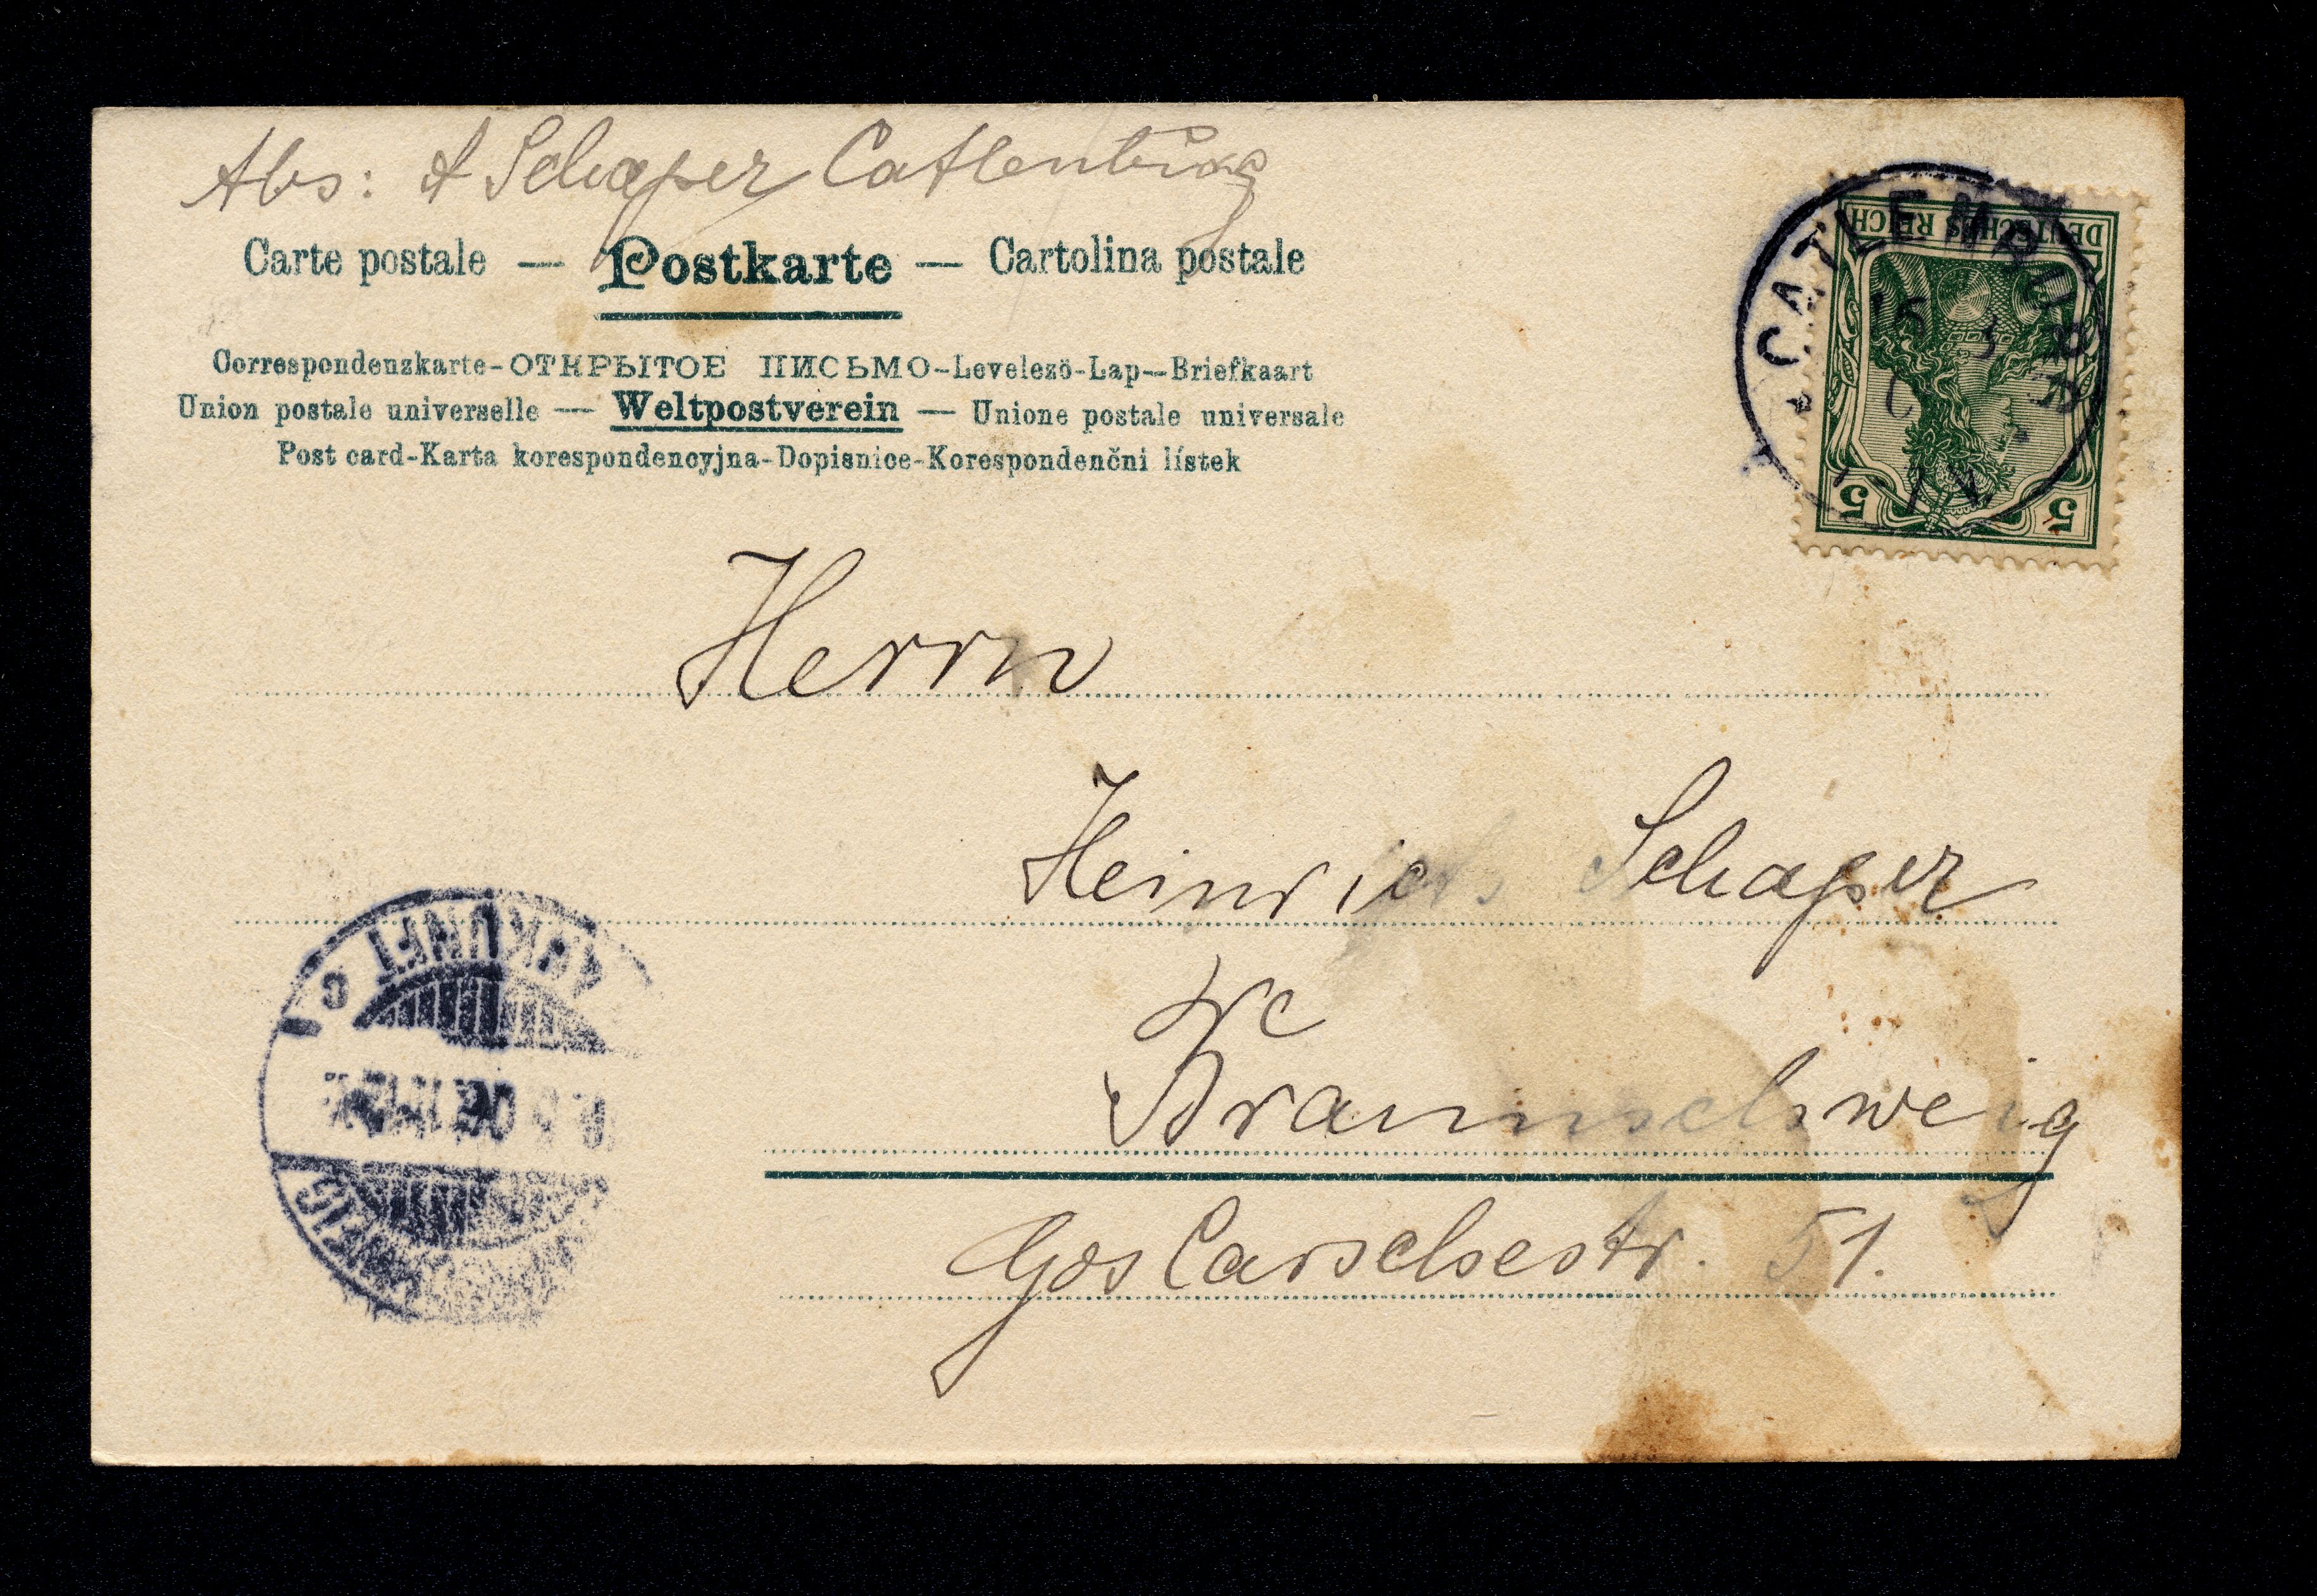 Abs: A Schaper Catlenburg
Carte postale — Postkarte — Cartolina postale
Correspondenzkarte-ОТКРЫТОЕ ПИСЬМО-Levelező-Lap-Briefkaart
Union postale universelle — Weltpostverein — Unione postale universale
Post card-Karta korespondencyjna-Dopisnice-Korespondenční lístek
CATLENBURG
DEUTSCHES REICH
5 5
Herrn
Heinrich Schaper
Braunschweig
Goslarschestr. 51.
ANKUNFT
C